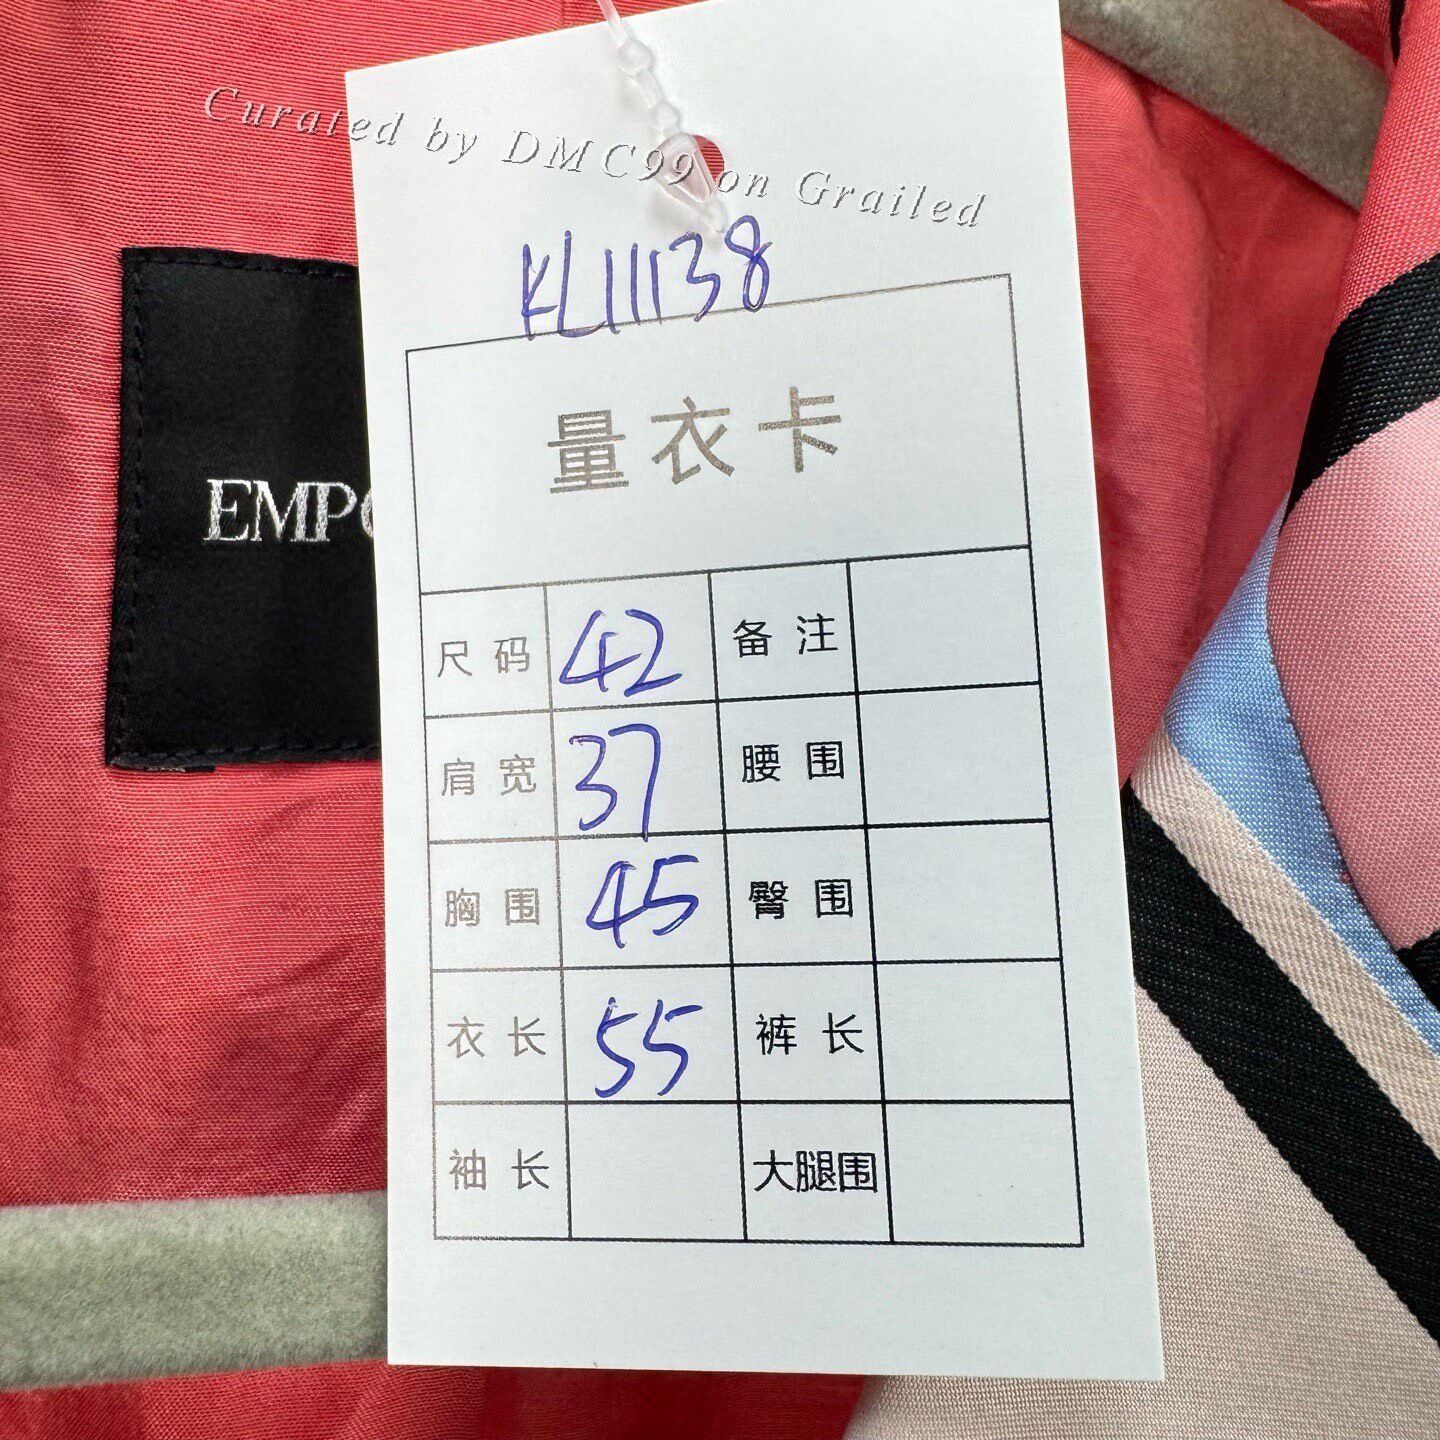 Curated by DMC99 on Grailed
KL11138
量衣卡
EMPO
尺码 42 备注
肩宽 37 腰围
胸围 45 臀围
衣长 55 裤长
袖长 大腿围